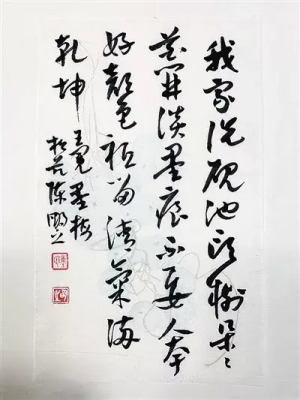 我家洗硯池頭樹朵〻
花開淡墨痕不要人夸
好顏色祇留清氣滿
乾坤 王冕墨梅
陳